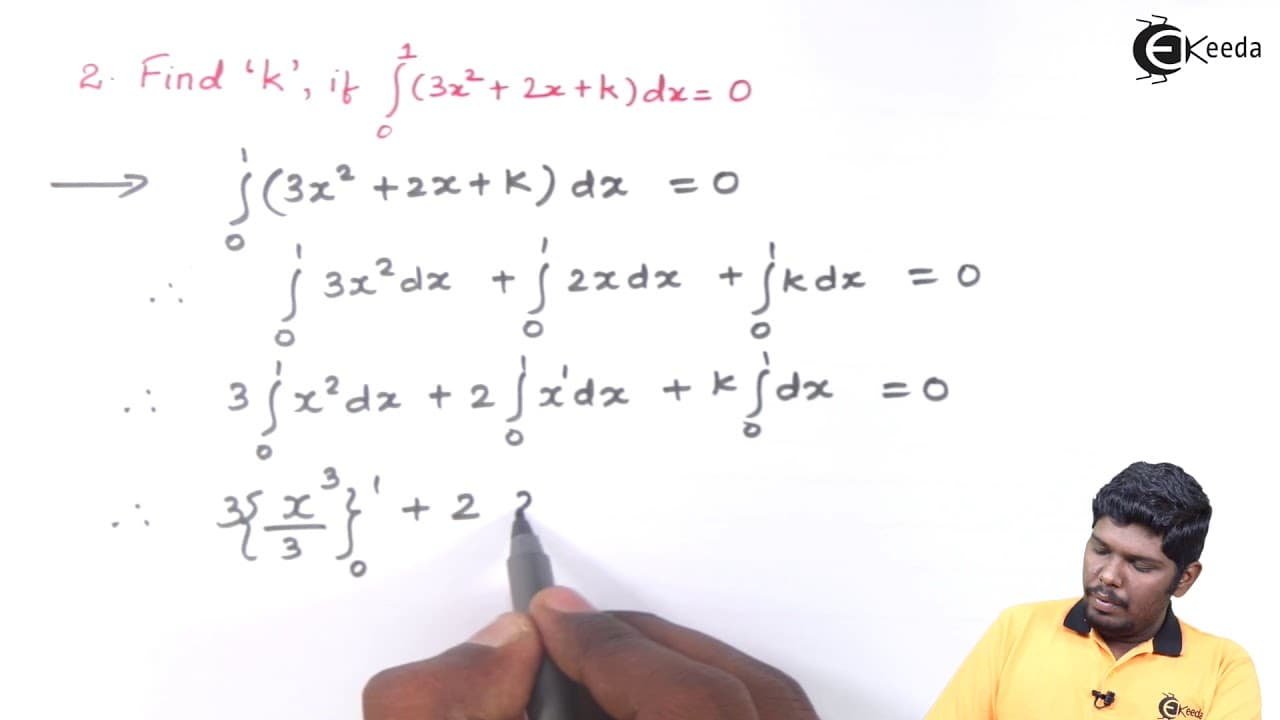 2. Find 'k', if ∫₀¹(3x² + 2x + k)dx = 0
⟶ ∫₀¹(3x² + 2x + k) dx = 0
∴ ∫₀¹ 3x² dx + ∫₀¹ 2x dx + ∫₀¹ k dx = 0
∴ 3∫₀¹ x² dx + 2∫₀¹ x¹ dx + k∫₀¹ dx = 0
∴ 3{x³/3}₀¹ + 2
EKeeda
EKeeda